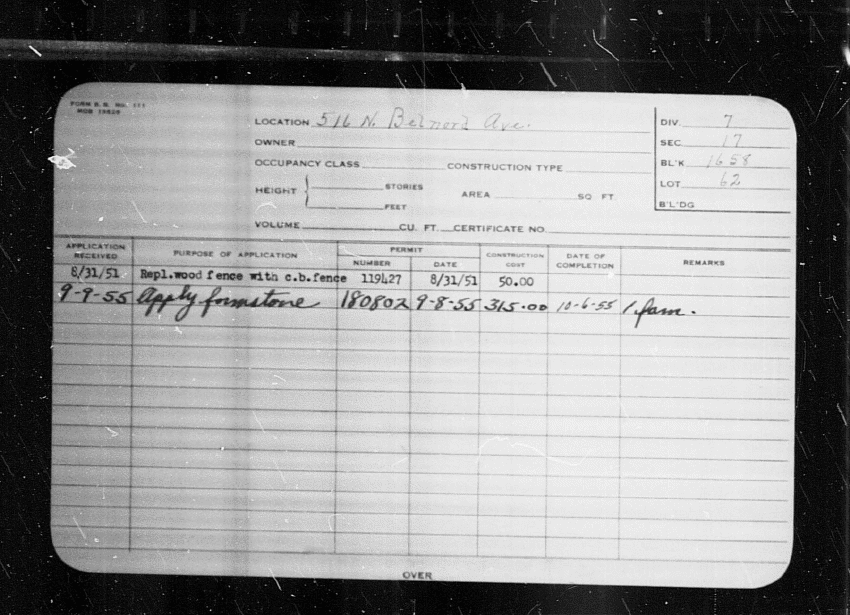 FORM B. B. No. 111
MOB 19629
LOCATION 516 N. Belnord Ave.
DIV. 7
OWNER
SEC 17
OCCUPANCY CLASS CONSTRUCTION TYPE
BL'K 1658
HEIGHT STORIES AREA SQ FT.
LOT 62
FEET
B'L'DG
VOLUME CU. FT. CERTIFICATE NO.
APPLICATION RECEIVED PURPOSE OF APPLICATION PERMIT NUMBER DATE CONSTRUCTION COST DATE OF COMPLETION REMARKS
8/31/51 Repl.wood fence with c.b.fence 119427 8/31/51 50.00
9-9-55 Apply formstone 180802 9-8-55 315.00 10-6-55 1 fam.
OVER